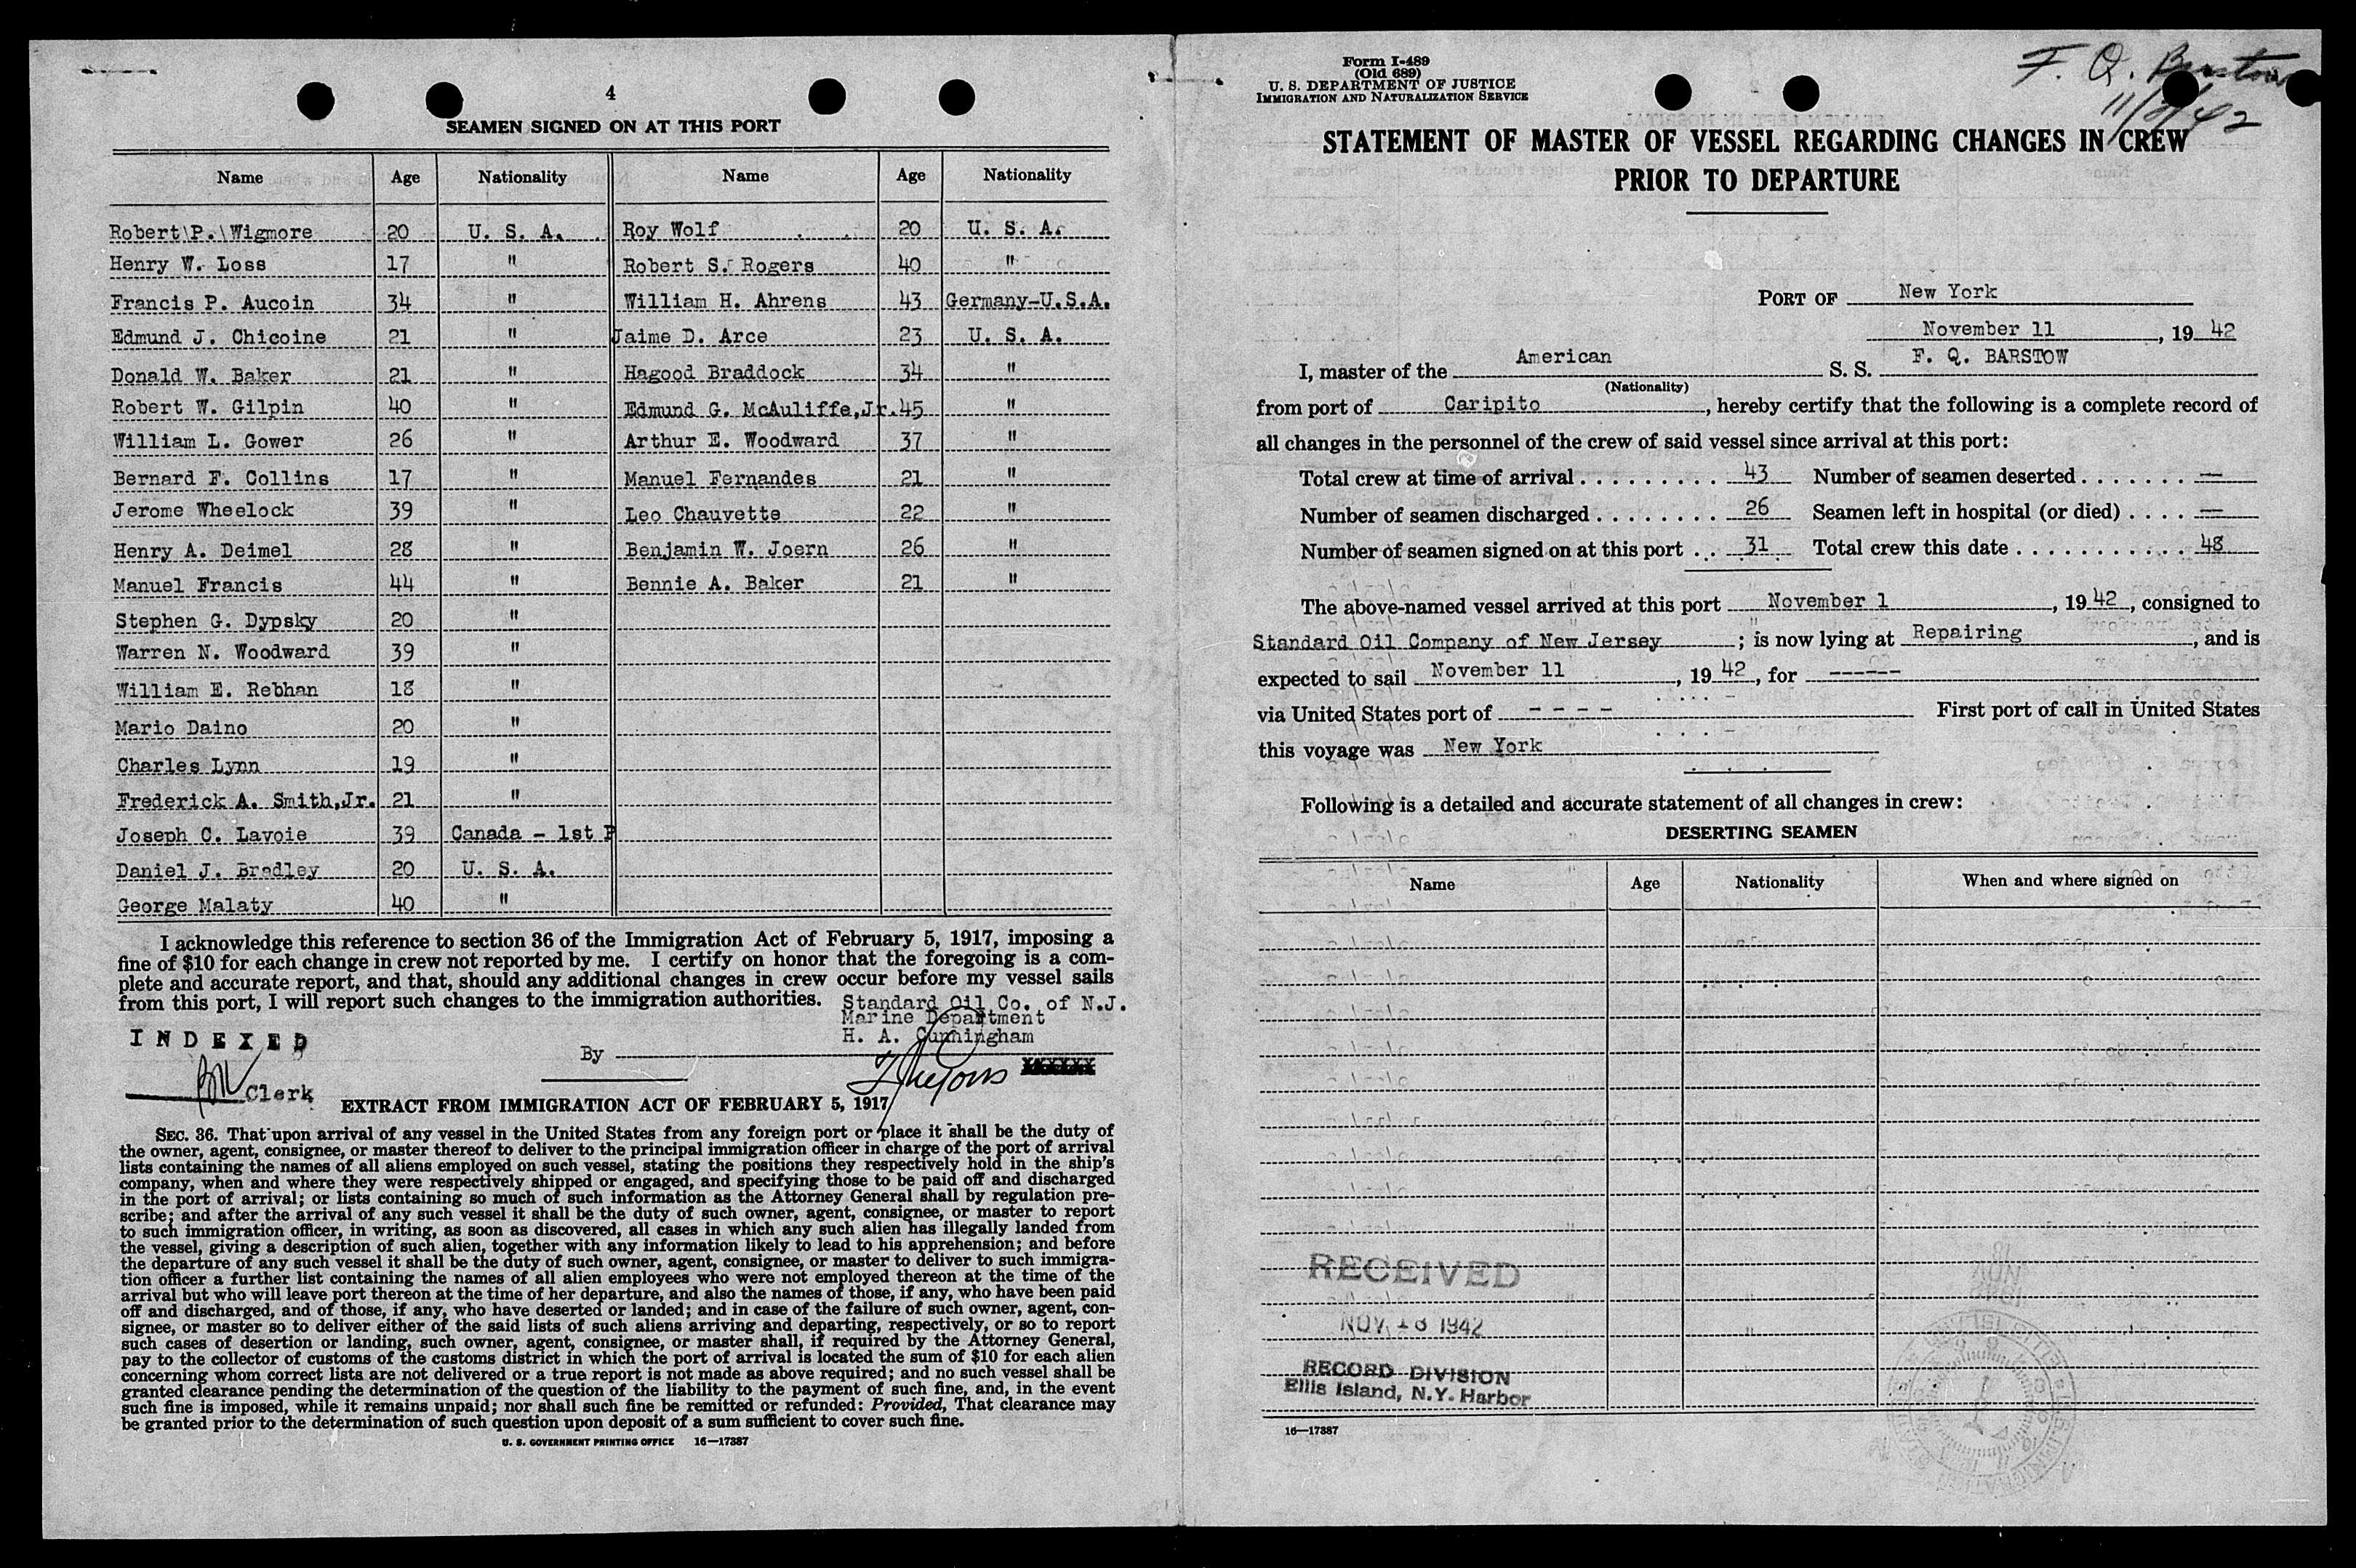 4
SEAMEN SIGNED ON AT THIS PORT
Name Age Nationality Name Age Nationality
Robert P. Wigmore 20 U. S. A. Roy Wolf 20 U. S. A.
Henry W. Loss 17 " Robert S. Rogers 40 "
Francis P. Aucoin 34 " William H. Ahrens 43 Germany-U.S.A.
Edmund J. Chicoine 21 " Jaime D. Arce 23 U. S. A.
Donald W. Baker 21 " Hagood Braddock 34 "
Robert W. Gilpin 40 " Edmund G. McAuliffe,Jr. 45 "
William L. Gower 26 " Arthur E. Woodward 37 "
Bernard F. Collins 17 " Manuel Fernandes 21 "
Jerome Wheelock 39 " Leo Chauvette 22 "
Henry A. Deimel 28 " Benjamin W. Joern 26 "
Manuel Francis 44 " Bennie A. Baker 21 "
Stephen G. Dypsky 20 "
Warren N. Woodward 39 "
William E. Rebhan 18 "
Mario Daino 20 "
Charles Lynn 19 "
Frederick A. Smith,Jr. 21 "
Joseph C. Lavoie 39 Canada - 1st P
Daniel J. Bradley 20 U. S. A.
George Malaty 40 "
I acknowledge this reference to section 36 of the Immigration Act of February 5, 1917, imposing a
fine of $10 for each change in crew not reported by me. I certify on honor that the foregoing is a com-
plete and accurate report, and that, should any additional changes in crew occur before my vessel sails
from this port, I will report such changes to the immigration authorities.
Standard Oil Co. of N.J.
Marine Department
H. A. Cunningham
INDEXED
By
Clerk
EXTRACT FROM IMMIGRATION ACT OF FEBRUARY 5, 1917
SEC. 36. That upon arrival of any vessel in the United States from any foreign port or place it shall be the duty of
the owner, agent, consignee, or master thereof to deliver to the principal immigration officer in charge of the port of arrival
lists containing the names of all aliens employed on such vessel, stating the positions they respectively hold in the ship's
company, when and where they were respectively shipped or engaged, and specifying those to be paid off and discharged
in the port of arrival; or lists containing so much of such information as the Attorney General shall by regulation pre-
scribe; and after the arrival of any such vessel it shall be the duty of such owner, agent, consignee, or master to report
to such immigration officer, in writing, as soon as discovered, all cases in which any such alien has illegally landed from
the vessel, giving a description of such alien, together with any information likely to lead to his apprehension; and before
the departure of any such vessel it shall be the duty of such owner, agent, consignee, or master to deliver to such immigra-
tion officer a further list containing the names of all alien employees who were not employed thereon at the time of the
arrival but who will leave port thereon at the time of her departure, and also the names of those, if any, who have been paid
off and discharged, and of those, if any, who have deserted or landed; and in case of the failure of such owner, agent, con-
signee, or master so to deliver either of the said lists of such aliens arriving and departing, respectively, or so to report
such cases of desertion or landing, such owner, agent, consignee, or master shall, if required by the Attorney General,
pay to the collector of customs of the customs district in which the port of arrival is located the sum of $10 for each alien
concerning whom correct lists are not delivered or a true report is not made as above required; and no such vessel shall be
granted clearance pending the determination of the question of the liability to the payment of such fine, and, in the event
such fine is imposed, while it remains unpaid; nor shall such fine be remitted or refunded: Provided, That clearance may
be granted prior to the determination of such question upon deposit of a sum sufficient to cover such fine.
U. S. GOVERNMENT PRINTING OFFICE 16—17387
Form I-489
(Old 689)
U. S. DEPARTMENT OF JUSTICE
IMMIGRATION AND NATURALIZATION SERVICE
F. Q. Barstow
STATEMENT OF MASTER OF VESSEL REGARDING CHANGES IN CREW
PRIOR TO DEPARTURE
PORT OF New York
November 11, 19 42
I, master of the American S. S. F. Q. BARSTOW
(Nationality)
from port of Caripito, hereby certify that the following is a complete record of
all changes in the personnel of the crew of said vessel since arrival at this port:
Total crew at time of arrival . . . . . . . . . 43 Number of seamen deserted . . . . . . . —
Number of seamen discharged . . . . . . . . 26 Seamen left in hospital (or died) . . . . —
Number of seamen signed on at this port . . 31 Total crew this date . . . . . . . . . . . . 48
The above-named vessel arrived at this port November 1, 19 42, consigned to
Standard Oil Company of New Jersey; is now lying at Repairing, and is
expected to sail November 11, 19 42, for ------
via United States port of - - - - First port of call in United States
this voyage was New York
Following is a detailed and accurate statement of all changes in crew:
DESERTING SEAMEN
Name Age Nationality When and where signed on
RECEIVED
NOV 18 1942
RECORD DIVISION
Ellis Island, N.Y. Harbor
16—17387